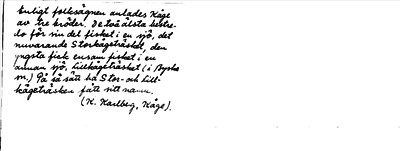 Enligt folksägnen anlades Kåge
av tre bröder. De två älsta bestre-
do för sin del fisket i en sjö, det
nuvarande Storkågeträsket, den
yngsta fick ensam fisket i en
annan sjö, Lillkågeträsket (i Byske
sn.) På så sätt ha Stor- och Lill-
kågeträsken fått sitt namn.
(K. Karlberg, Kåge).